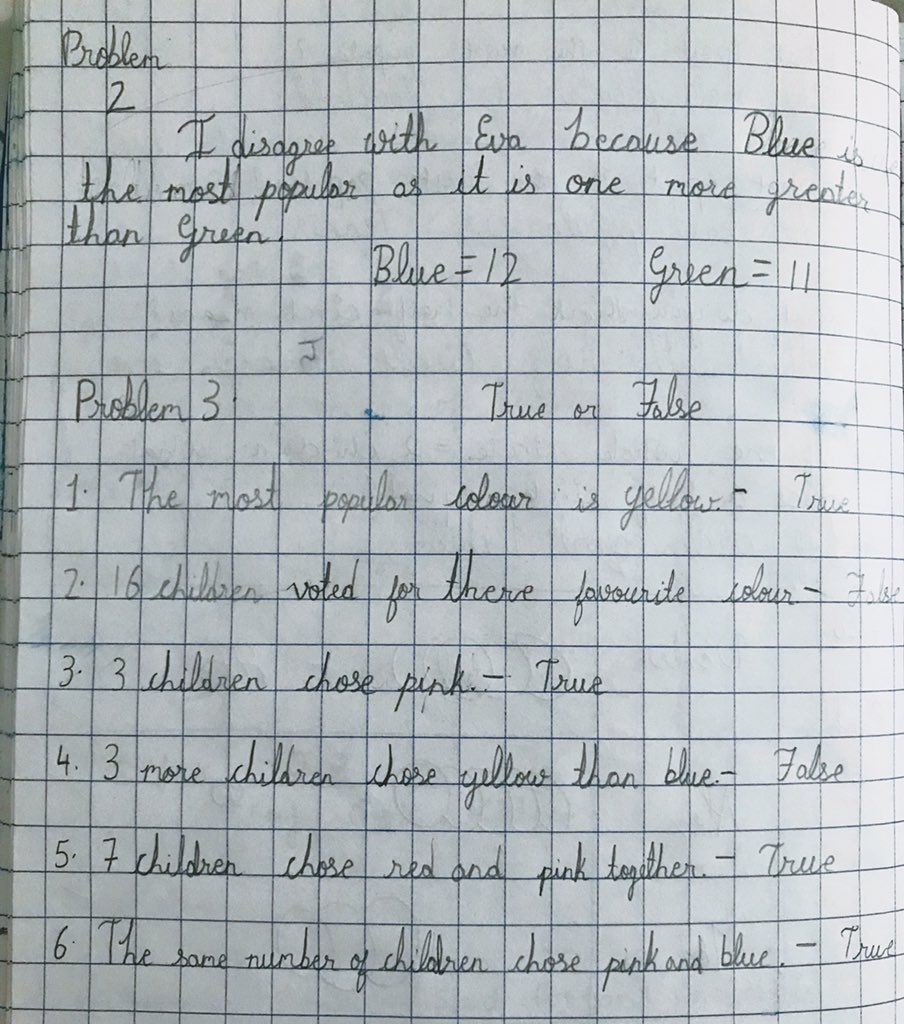 Problem
2
I disagree with Eva because Blue is
the most popular as it is one more greater
than Green.
Blue = 12 Green = 11
Problem 3 True or False
1. The most popular colour is yellow. - True
2. 16 children voted for there favourite colour. - False
3. 3 children chose pink. - True
4. 3 more children chose yellow than blue. - False
5. 7 children chose red and pink together. - True
6. The same number of children chose pink and blue. - True